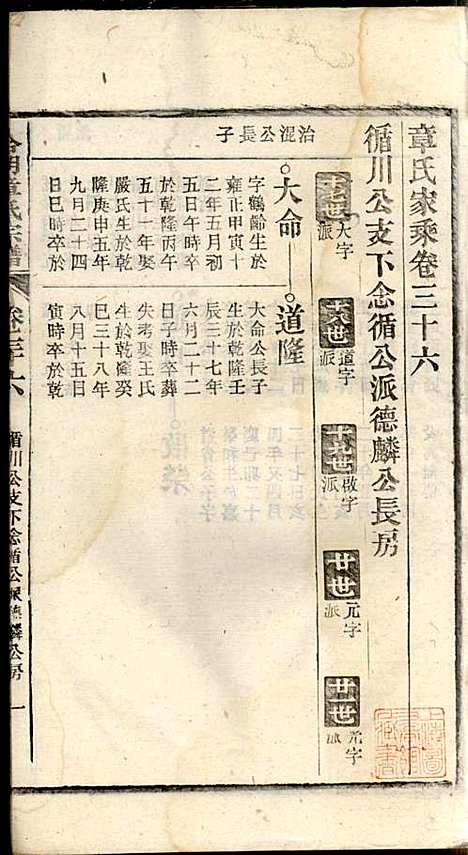 章氏家乘卷三十六
循川公支下念循公派德麟公長房
十七世 大字派
十八世 道字派
十九世 啟字派
廿世 元字派
廿世
治混公長子
大命
字鶴齡生於
雍正甲寅十
二年五月初
五日午時卒
於乾隆丙午
五十一年娶
嚴氏生於乾
隆庚申五年
九月二十四
日巳時卒於
道隆
大命公長子
生於乾隆壬
辰三十七年
六月二十二
日子時卒葬
失考娶王氏
生於乾隆癸
巳三十八年
八月十五日
寅時卒於乾
章氏宗譜
卷三十六
循川公支下念循公派德麟公房
一